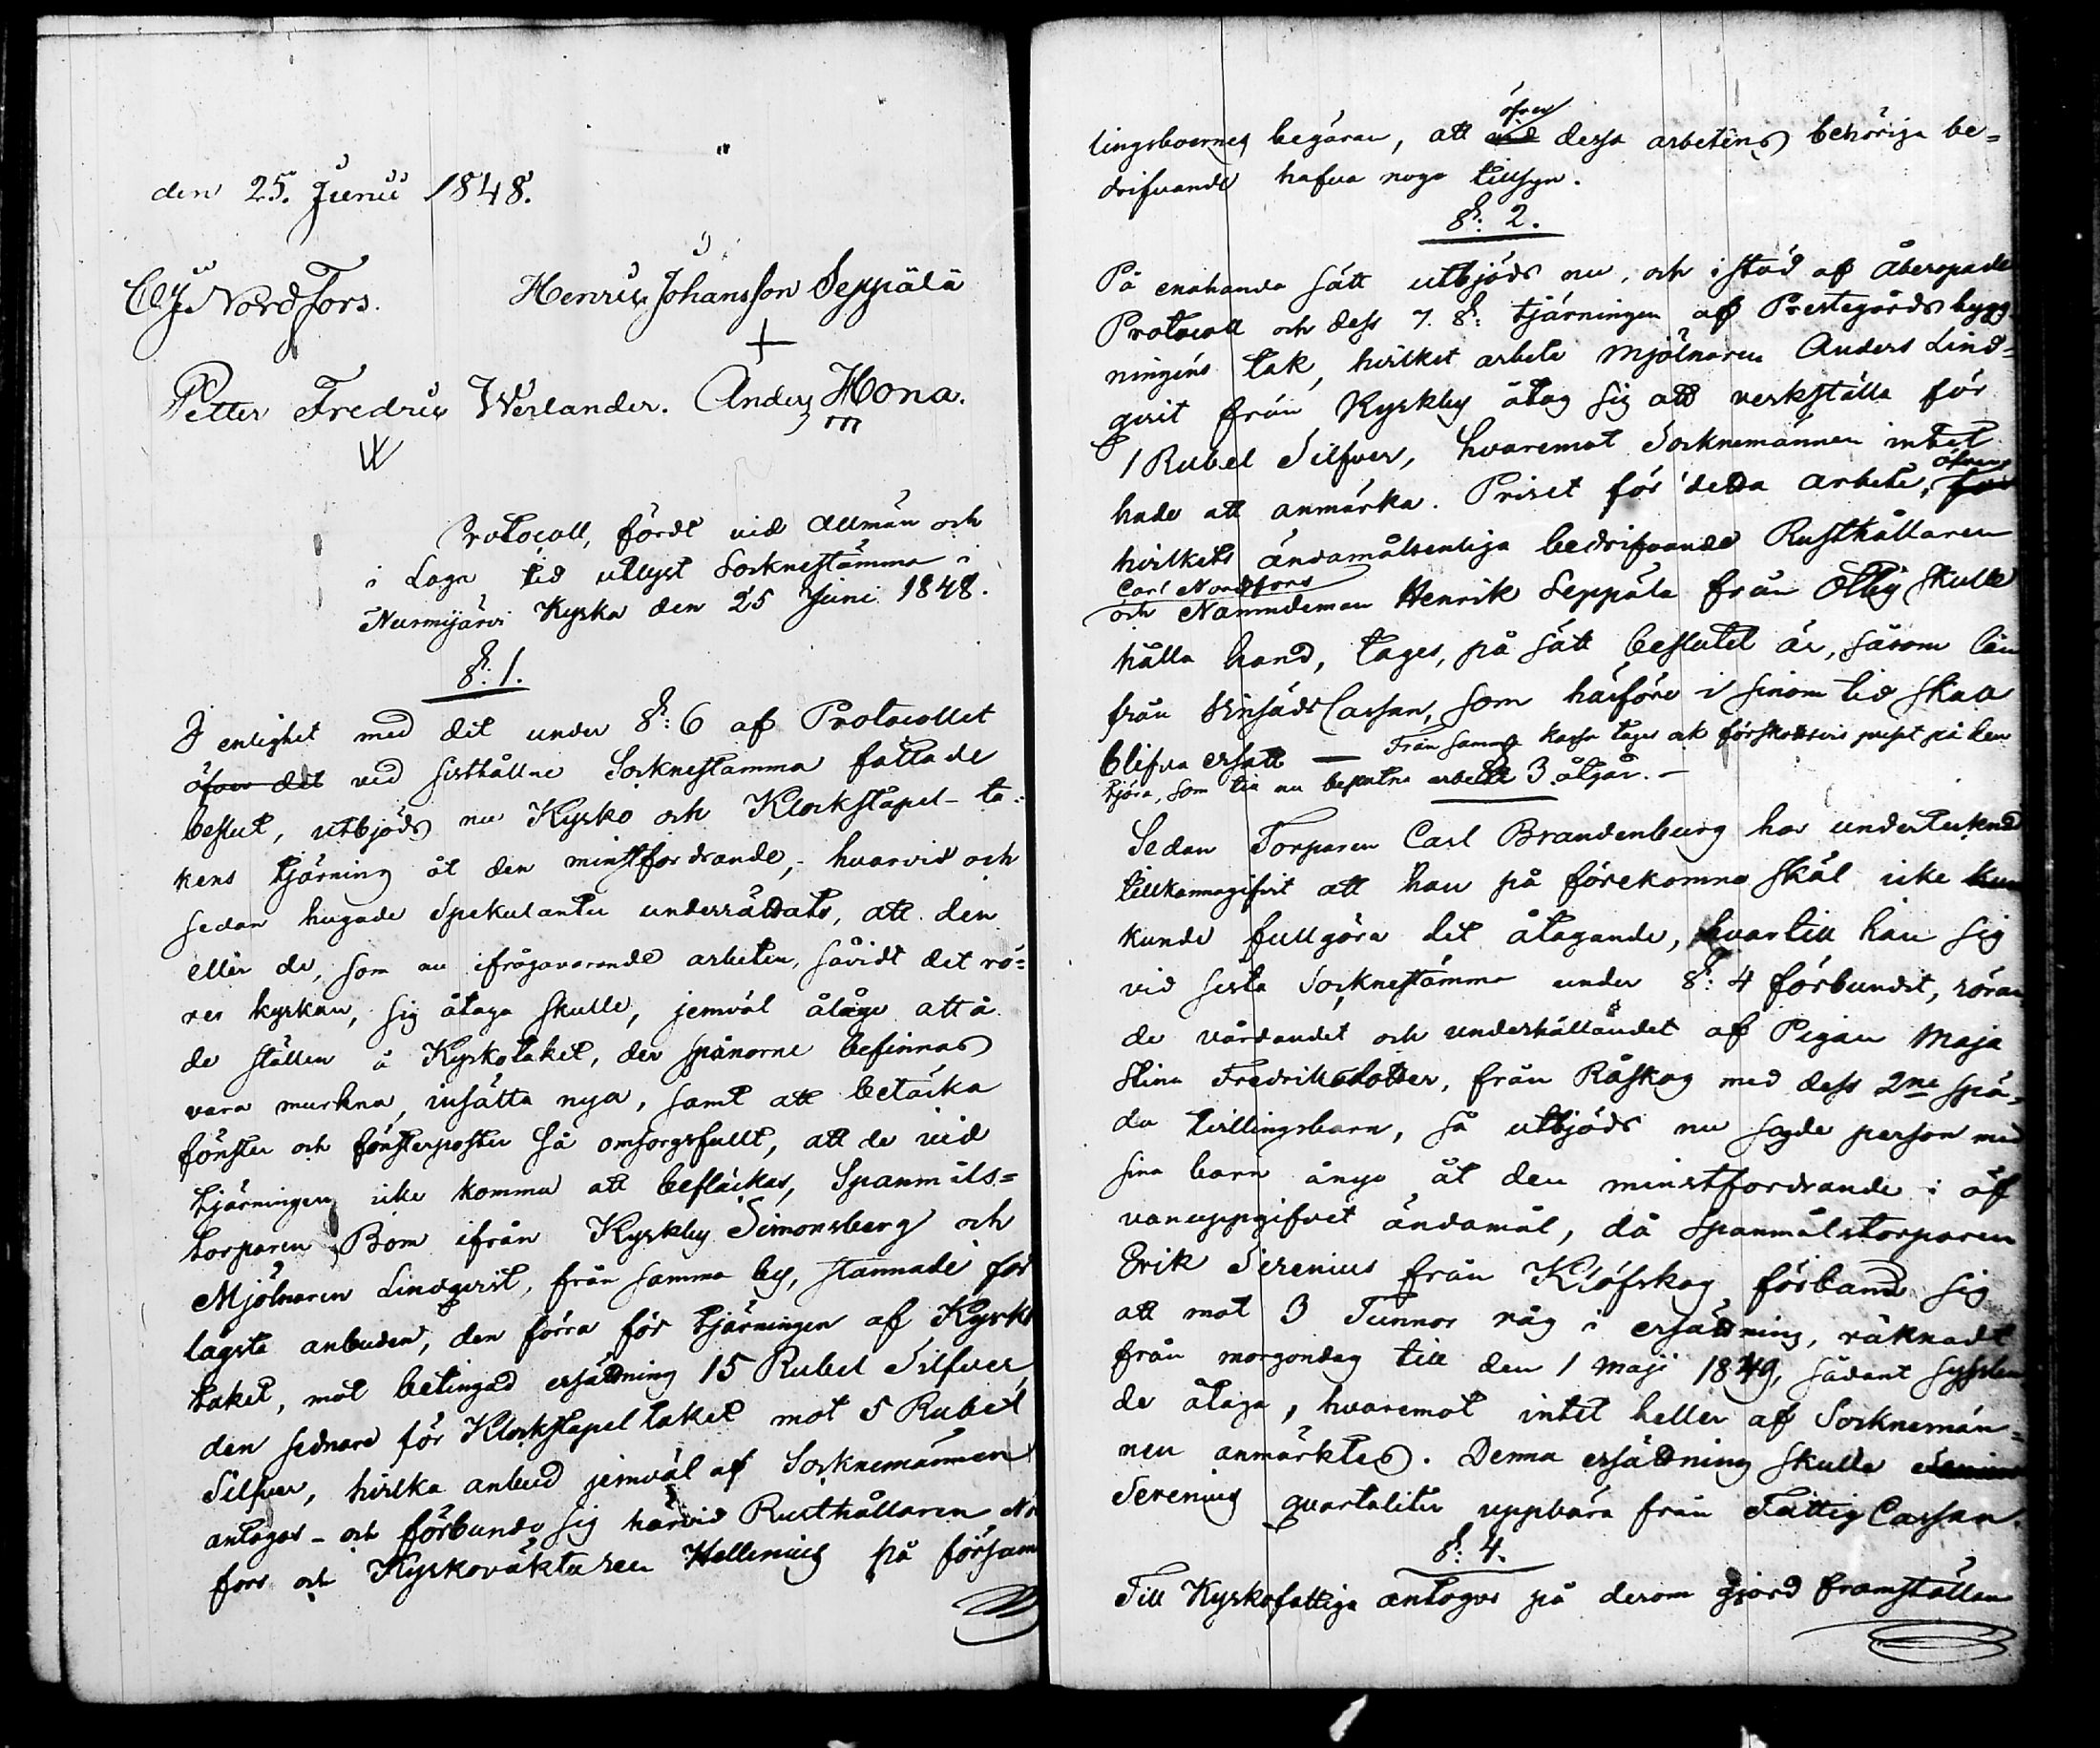 den 25. Junii 1848.
C Nordfors. Henric Johansson Seppälä
Petter Fredric Werlander. Anders Hona.
Protocoll, fördt vid allmän och
i Laga tid utlyst Socknestämma i
Nurmijärvi Kyrka den 25 Juni 1848.
§: 1.
I enlighet med det under §: 6 af Protocollet
öfver det vid sisthållne Socknestämma fattade
beslut, utbjöds nu Kyrko och Klockstapel-ta-
kens tjärning åt den minstfordrande, hvarvid och
sedan hugade Spekulanter underrättats, att den
eller de, som nu ifrågavarande arbeten, såvidt det rö-
rer kyrkan, sig åtaga skulle, jemväl ålåge att å
de ställen å Kyrkotaket, der spånorne befinnas
vara murkna, insätta nya, samt att betäcka
fönster och fönsterposter så omsorgsfullt, att de vid
tjärningen icke komma att befläckas, Spanmåls-
torparen Bom ifrån Kyrkby Simonsberg och
Mjölnaren Lindqvist, från samma by, stannade för
lägsta anbuden, den förra för tjärningen af Kyrko
taket, mot betingad ersättning 15 Rubel Silfver,
den sednare för Klockstapeltaket mot 5 Rubel
Silfver, hvilka anbud jemväl af Socknemännen
antogos - och förbundo sig härvid Rusthållaren No
fors och Kyrkoväktaren Hellenius på försam
lingsboernes begäran, att öfver vid dessa arbetens behöriga be-
drifvande hafva noga tillsyn.
§: 2.
På enahanda sätt utbjöds nu, och i stöd af åberopade
Protocoll och dess 7. §: tjärningen af Prestegårds bygg
ningens tak, hvilket arbete Mjölnaren Anders Lind-
qvist från Kyrkby åtog sig att verkställa för
1 Rubel Silfver, hvaremot Socknemännen intet
hade att anmärka. Priset för detta arbete, öfver för
hvilkets ändamålsenliga bedrifvande Rusthållaren
Carl Nordfors
och Nämndeman Henrik Seppälä från Ollby skulle
hålla hand, tages, på sätt beslutet är, såsom lån
från Cassan, som härföre i sinom tid skall
blifva ersatt — Från samma kassa tages ock förskottsvis priset på den
tjära, som till nu beslutne arbeten åtgår. —
§ 3.
Sedan Torparen Carl Brandenburg har undertecknad
tillkännagifvit att han på förekomna skäl icke kun
kunde fullgöra det åtagande, hvartill han sig
vid sista Socknestämma under §: 4 förbundit, röran
de vårdandet och underhållandet af Pigan Maja
Stina Fredriksdotter, från Råskog med dess 2ne spä-
da tvillingsbarn, så utbjöds nu sagde person med
sina barn ånyo åt den minstfordrande i of
vanuppgifvet ändamål, då Spanmålstorparen
Erik Serenius från Klöfskog förband sig
att mot 3 Tunnor råg i ersättning, räknadt
från morgondag till den 1 Maji 1849, sådant
de åtaga, hvaremot intet heller af Socknemän-
nen anmärktes. Denna ersättning skulle
Serenius qvartaliter uppbära från Fattig Cassan.
§: 4.
Till Kyrkofattiga antogos på derom gjord framställan